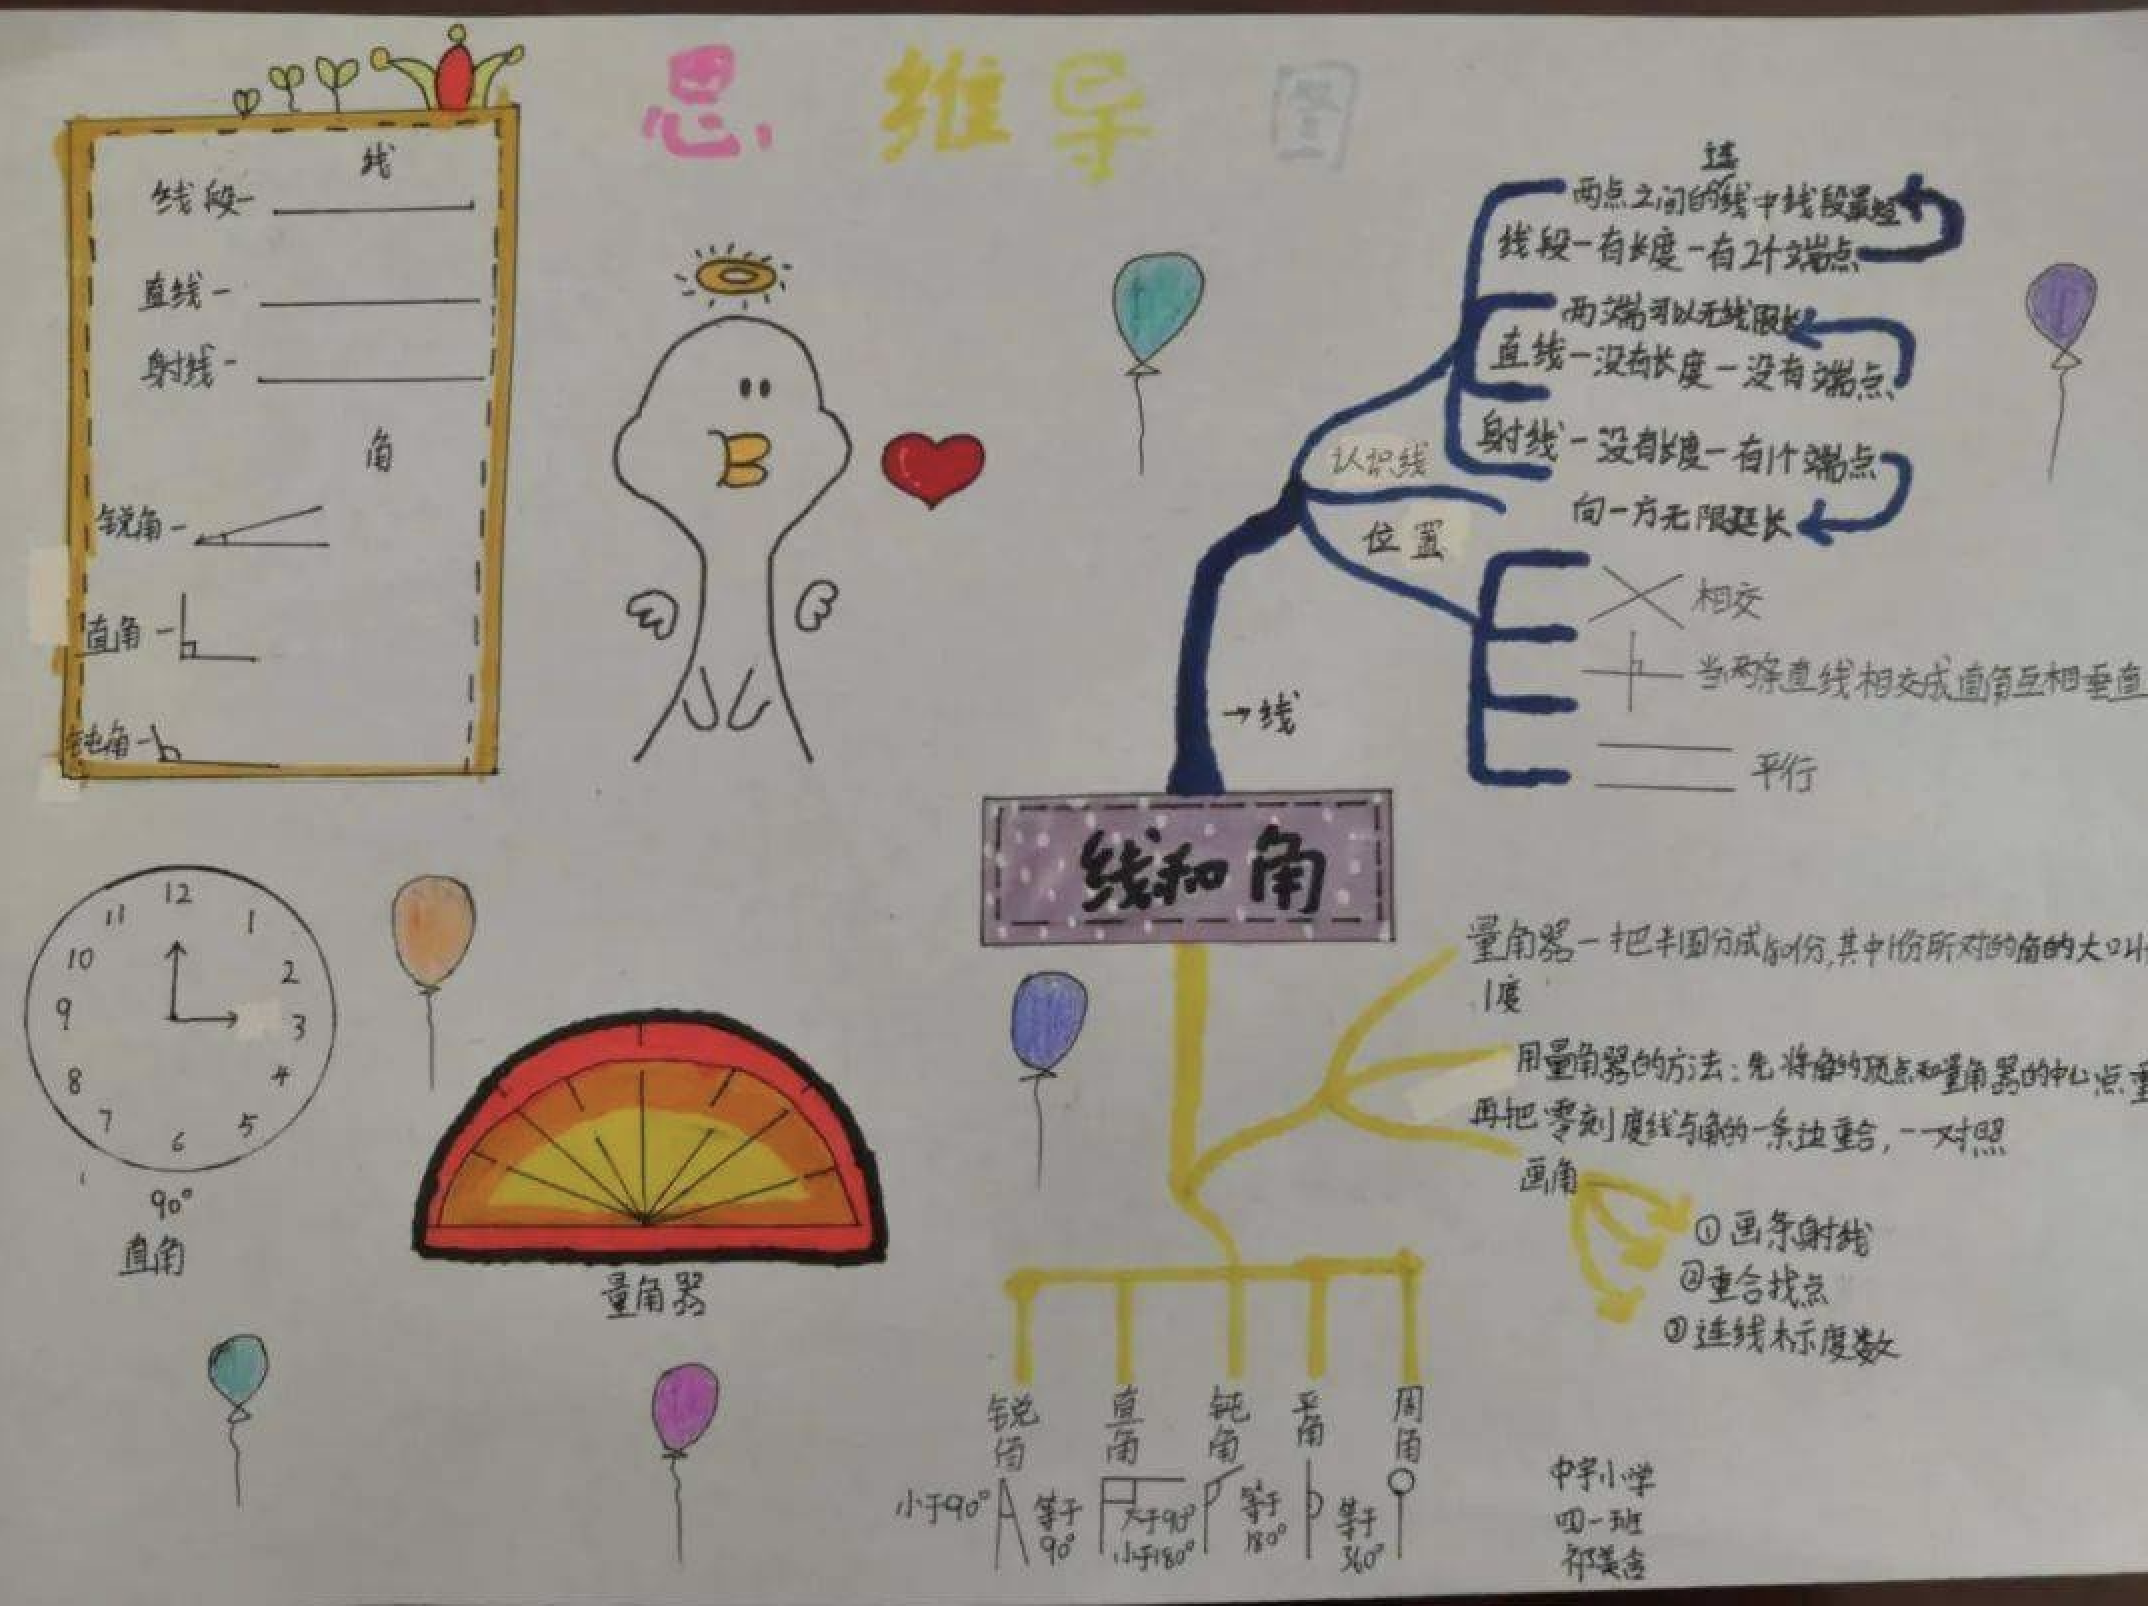 思维导图
线
线段-
直线-
射线-
角
锐角-
直角-
钝角-
12
1
2
3
4
5
6
7
8
9
10
11
90°
直角
量角器
连
两点之间的线中线段最短
线段-有长度-有2个端点
两端可以无线
直线-没有长度-没有端点
射线-没有长度-有1个端点
向一方无限延长
认识线
位置
相交
当两条直线相交成直角互相垂直
平行
→线
线和角
量角器-把半圆分成180份,其中1份所对的角的大小
1度
用量角器的方法:先将角的顶点和量角器的中心点重
再把零刻度线与角的一条边重合,一对照
画角
①画条射线
②重合找点
③连线标示度数
锐角
直角
钝角
平角
周角
小于90°
等于90°
大于90°
小于180°
等于180°
等于360°
中字小学
四一班